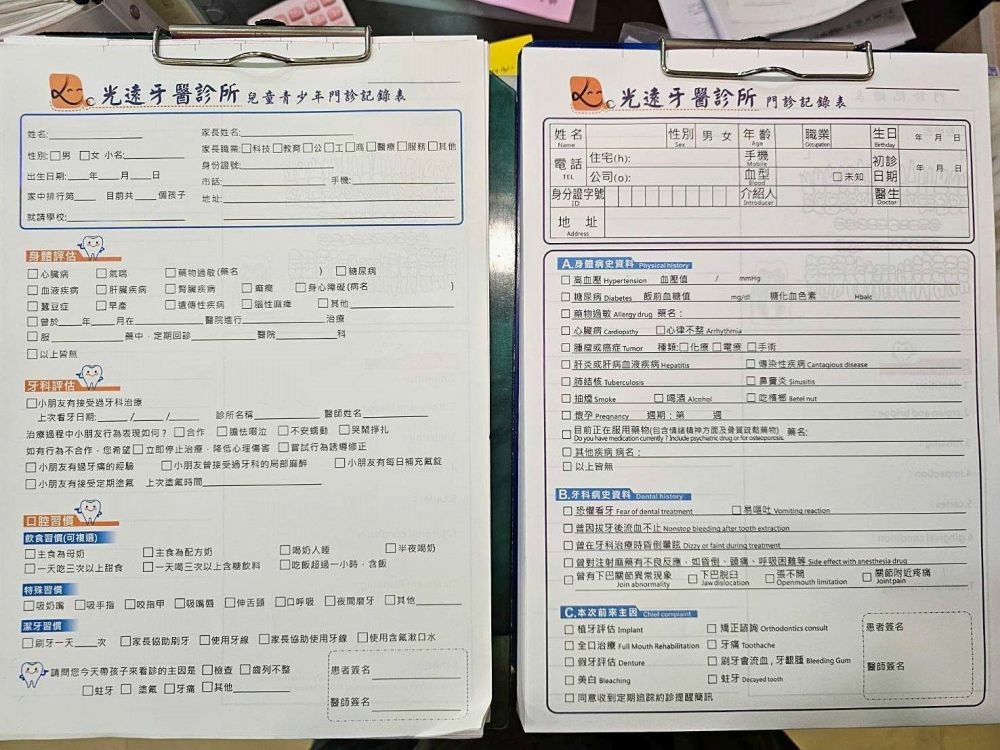 光遠牙醫診所 兒童青少年門診記錄表
姓名:
性別:□男 □女 小名:
出生日期: 年 月 日
家中排行第 目前共 個孩子
就讀學校:
家長姓名:
家長職業:□科技□教育□公□工□商□醫療□服務□其他
身份證號:
市話: 手機:
地址:
身體評估
□心臟病 □氣喘 □藥物過敏(藥名 ) □糖尿病
□血液疾病 □肝臟疾病 □腎臟疾病 □癲癇 □身心障礙(病名 )
□蠶豆症 □早產 □遺傳性疾病 □腦性麻痺 □其他
□曾於 年 月在 醫院進行 治療
□服 藥中，定期回診 醫院 科
□以上皆無
牙科評估
□小朋友有接受過牙科治療
上次看牙日期: / / 診所名稱 醫師姓名
治療過程中小朋友行為表現如何？□合作 □膽怯啜泣 □不安蠕動 □哭鬧掙扎
如有行為不合作，您希望□立即停止治療，降低心理傷害 □嘗試行為誘導修正
□小朋友有過牙痛的經驗 □小朋友曾接受過牙科的局部麻醉 □小朋友有每日補充氟錠
□小朋友有接受定期塗氟 上次塗氟時間
口腔習慣
飲食習慣(可複選)
□主食為母奶 □主食為配方奶 □喝奶入睡 □半夜喝奶
□一天吃三次以上甜食 □一天喝三次以上含糖飲料 □吃飯超過一小時，含飯
特殊習慣
□吸奶嘴 □吸手指 □咬指甲 □吸嘴唇 □伸舌頭 □口呼吸 □夜間磨牙 □其他
潔牙習慣
□刷牙一天 次 □家長協助刷牙 □使用牙線 □家長協助使用牙線 □使用含氟漱口水
請問您今天帶孩子來看診的主因是 □檢查 □齒列不整
□蛀牙 □ 塗氟 □牙痛 □其他
患者簽名
醫師簽名
光遠牙醫診所 門診記錄表
姓名 Name 性別 Sex 男 女 年齡 Age 職業 Occupation 生日 Birthday 年 月 日
電話 TEL 住宅(h): 手機 Mobile 初診日期 年 月 日
公司(o): 血型 Blood □未知
身分證字號 ID 介紹人 Introducer 醫生 Doctor
地址 Address
A.身體病史資料 Physical history
□高血壓 Hypertension 血壓值 / mmHg
□糖尿病 Diabetes 飯前血糖值 mg/dl 糖化血色素 Hbaic
□藥物過敏 Allergy drug 藥名:
□心臟病 Cardiopathy □心律不整 Arrhythmia
□腫瘤或癌症 Tumor 種類:□化療 □電療 □手術
□肝炎或肝病血液疾病 Hepatitis □傳染性疾病 Cantagious disease
□肺結核 Tuberculosis □鼻竇炎 Sinusitis
□抽煙 Smoke □喝酒 Alcohol □吃檳榔 Betel nut
□懷孕 Pregnancy 週期:第 週
□目前正在服用藥物(包含情緒精神方面及骨質疏鬆藥物) 藥名:
Do you have medication currently ? Include psychiatric drug or for osteoporosis.
□其他疾病 病名:
□以上皆無
B.牙科病史資料 Dental history
□恐懼看牙 Fear of dental treatment □易嘔吐 Vomiting reaction
□曾因拔牙後流血不止 Nonstop bleeding after tooth extraction
□曾在牙科治療時昏倒暈眩 Dizzy or faint during treatment
□曾對注射麻藥有不良反應，如昏倒、頭痛、呼吸困難等 Side effect with anesthesia drug
□曾有下巴關節異常現象 Join abnormality □下巴脫臼 Jaw dislocation □張不開 Openmouth limitation □關節附近疼痛 Joint pain
C.本次前來主因 Chief complaint
□植牙評估 Implant □矯正諮詢 Orthodontics consult
□全口治療 Full Mouth Rehabilitation □牙痛 Toothache
□假牙評估 Denture □刷牙會流血，牙齦腫 Bleeding Gum
□美白 Bleaching □蛀牙 Decayed tooth
□同意收到定期追踪約診提醒簡訊
患者簽名
醫師簽名